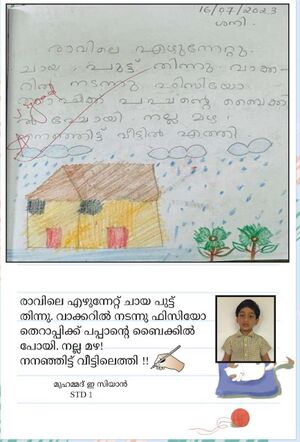 16/07/2023
ശനി.
രാവിലെ എഴുന്നേറ്റു.
ചായ, പുട്ട് തിന്നു വാക്ക
റിൽ നടന്നു ഫിസിയോ
പപ്പന്റെ ബൈക്കി
പോയി നല്ല മഴ
നനഞ്ഞിട്ട് വീട്ടിൽ എത്തി.
രാവിലെ എഴുന്നേറ്റ് ചായ പുട്ട്
തിന്നു. വാക്കറിൽ നടന്നു ഫിസിയോ
തെറാപ്പിക്ക് പപ്പാന്റെ ബൈക്കിൽ
പോയി. നല്ല മഴ!
നനഞ്ഞിട്ട് വീട്ടിലെത്തി !!
മുഹമ്മദ് ഇ സിയാൻ
STD 1